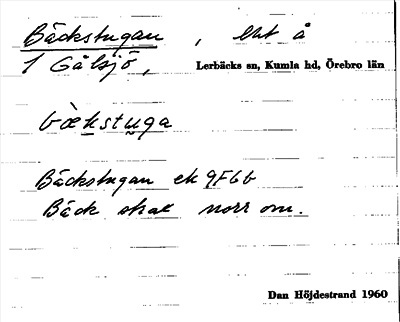 Bäckstugan, lht å
1 Gålsjö, Lerbäcks sn, Kumla hd, Örebro län
bækstuga
Bäckstugan ek 9F6b
Bäck strax norr om.
Dan Höjdestrand 1960